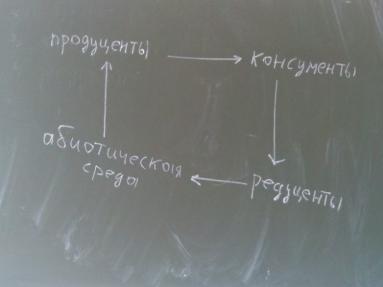 продуценты
консументы
абиотическая
среда
редуценты